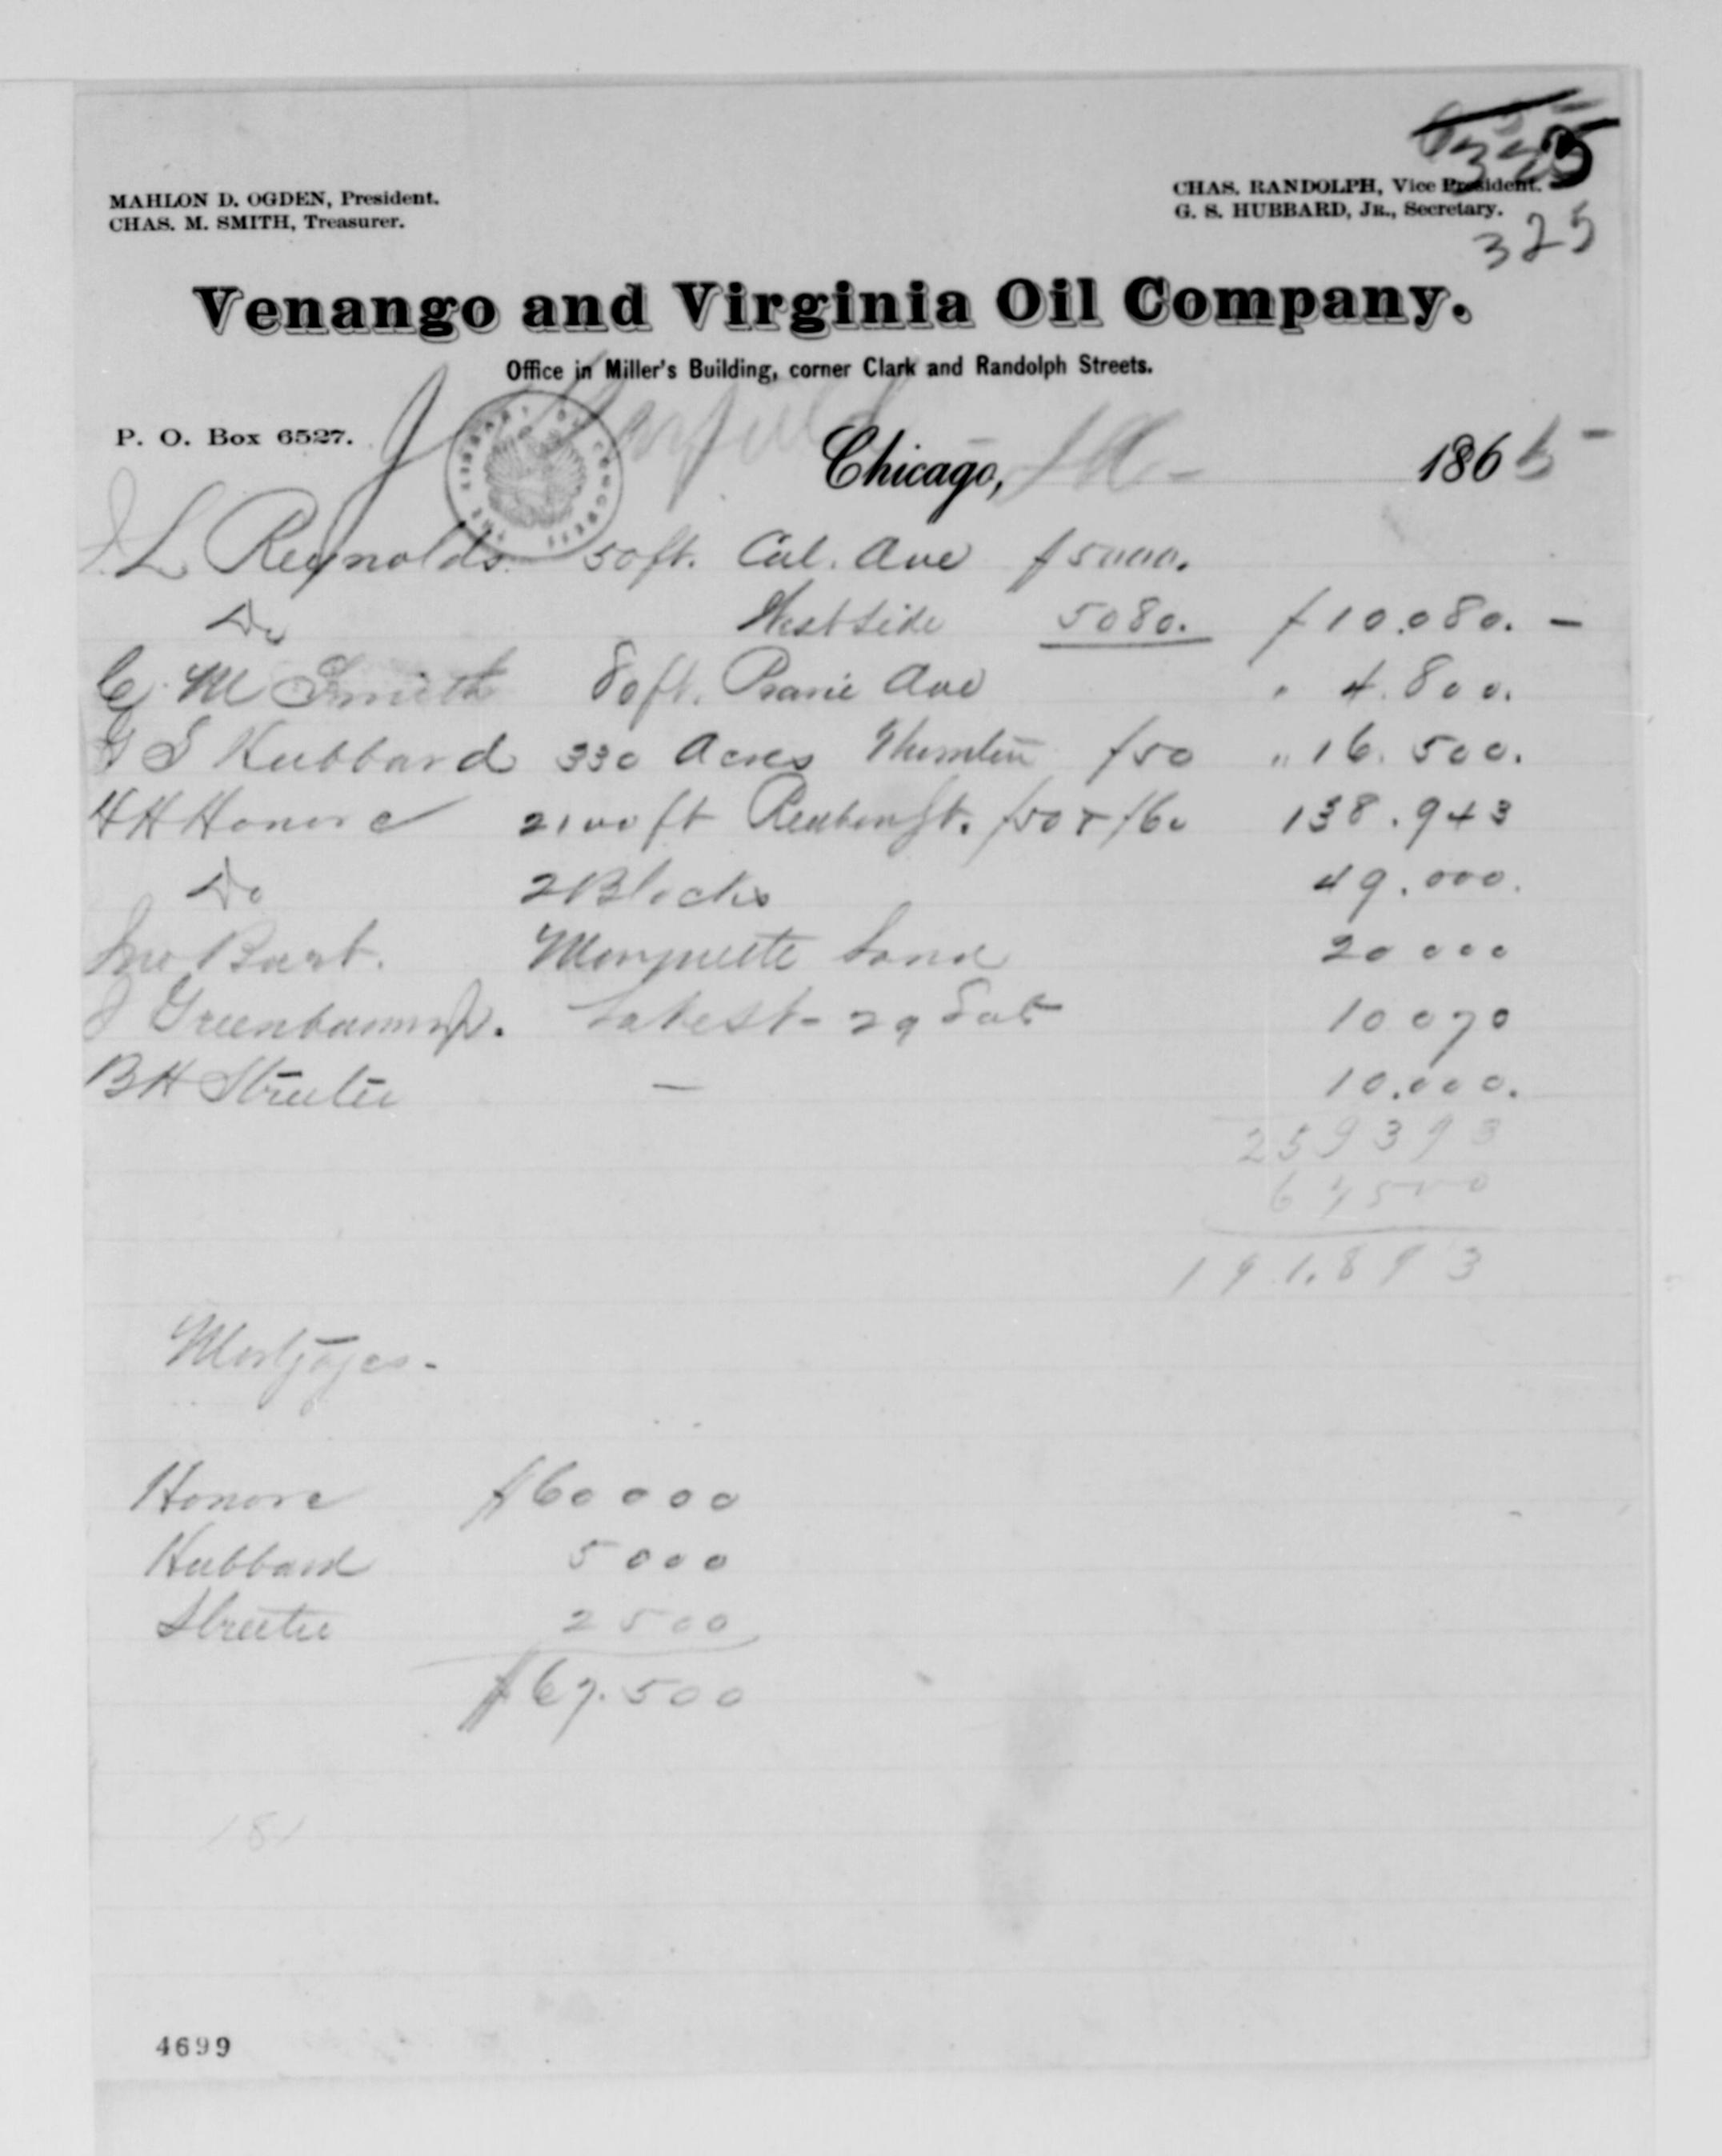 325
MAHLON D. OGDEN, President.
CHAS. M. SMITH, Treasurer.
CHAS. RANDOLPH, Vice President.
G. S. HUBBARD, JR., Secretary.
325
Venango and Virginia Oil Company.
Office in Miller's Building, corner Clark and Randolph Streets.
J Garfield
P. O. Box 6527.
Chicago, Ill - 1865
J. L Reynolds 50 ft. Cal. Ave $5000.
Do West Side 5080. $10.080. -
C. M Smith 80 ft. Prarie Ave " 4.800.
G S Hubbard 330 Acres Thornton $50 " 16.500.
H H Honore 2100 ft Reuben St. $50 & $60 138.943
Do 2 Blocks 49.000.
Jno Bart. Marquette Land 20 000
J Greenbaum Jr. Lake St - 29 10 070
B H Streeter — 10.000.
259393
67500
191.893
Mortgages -
Honore $60000
Hubbard 5000
Streeter 2500
$67.500
181
4699